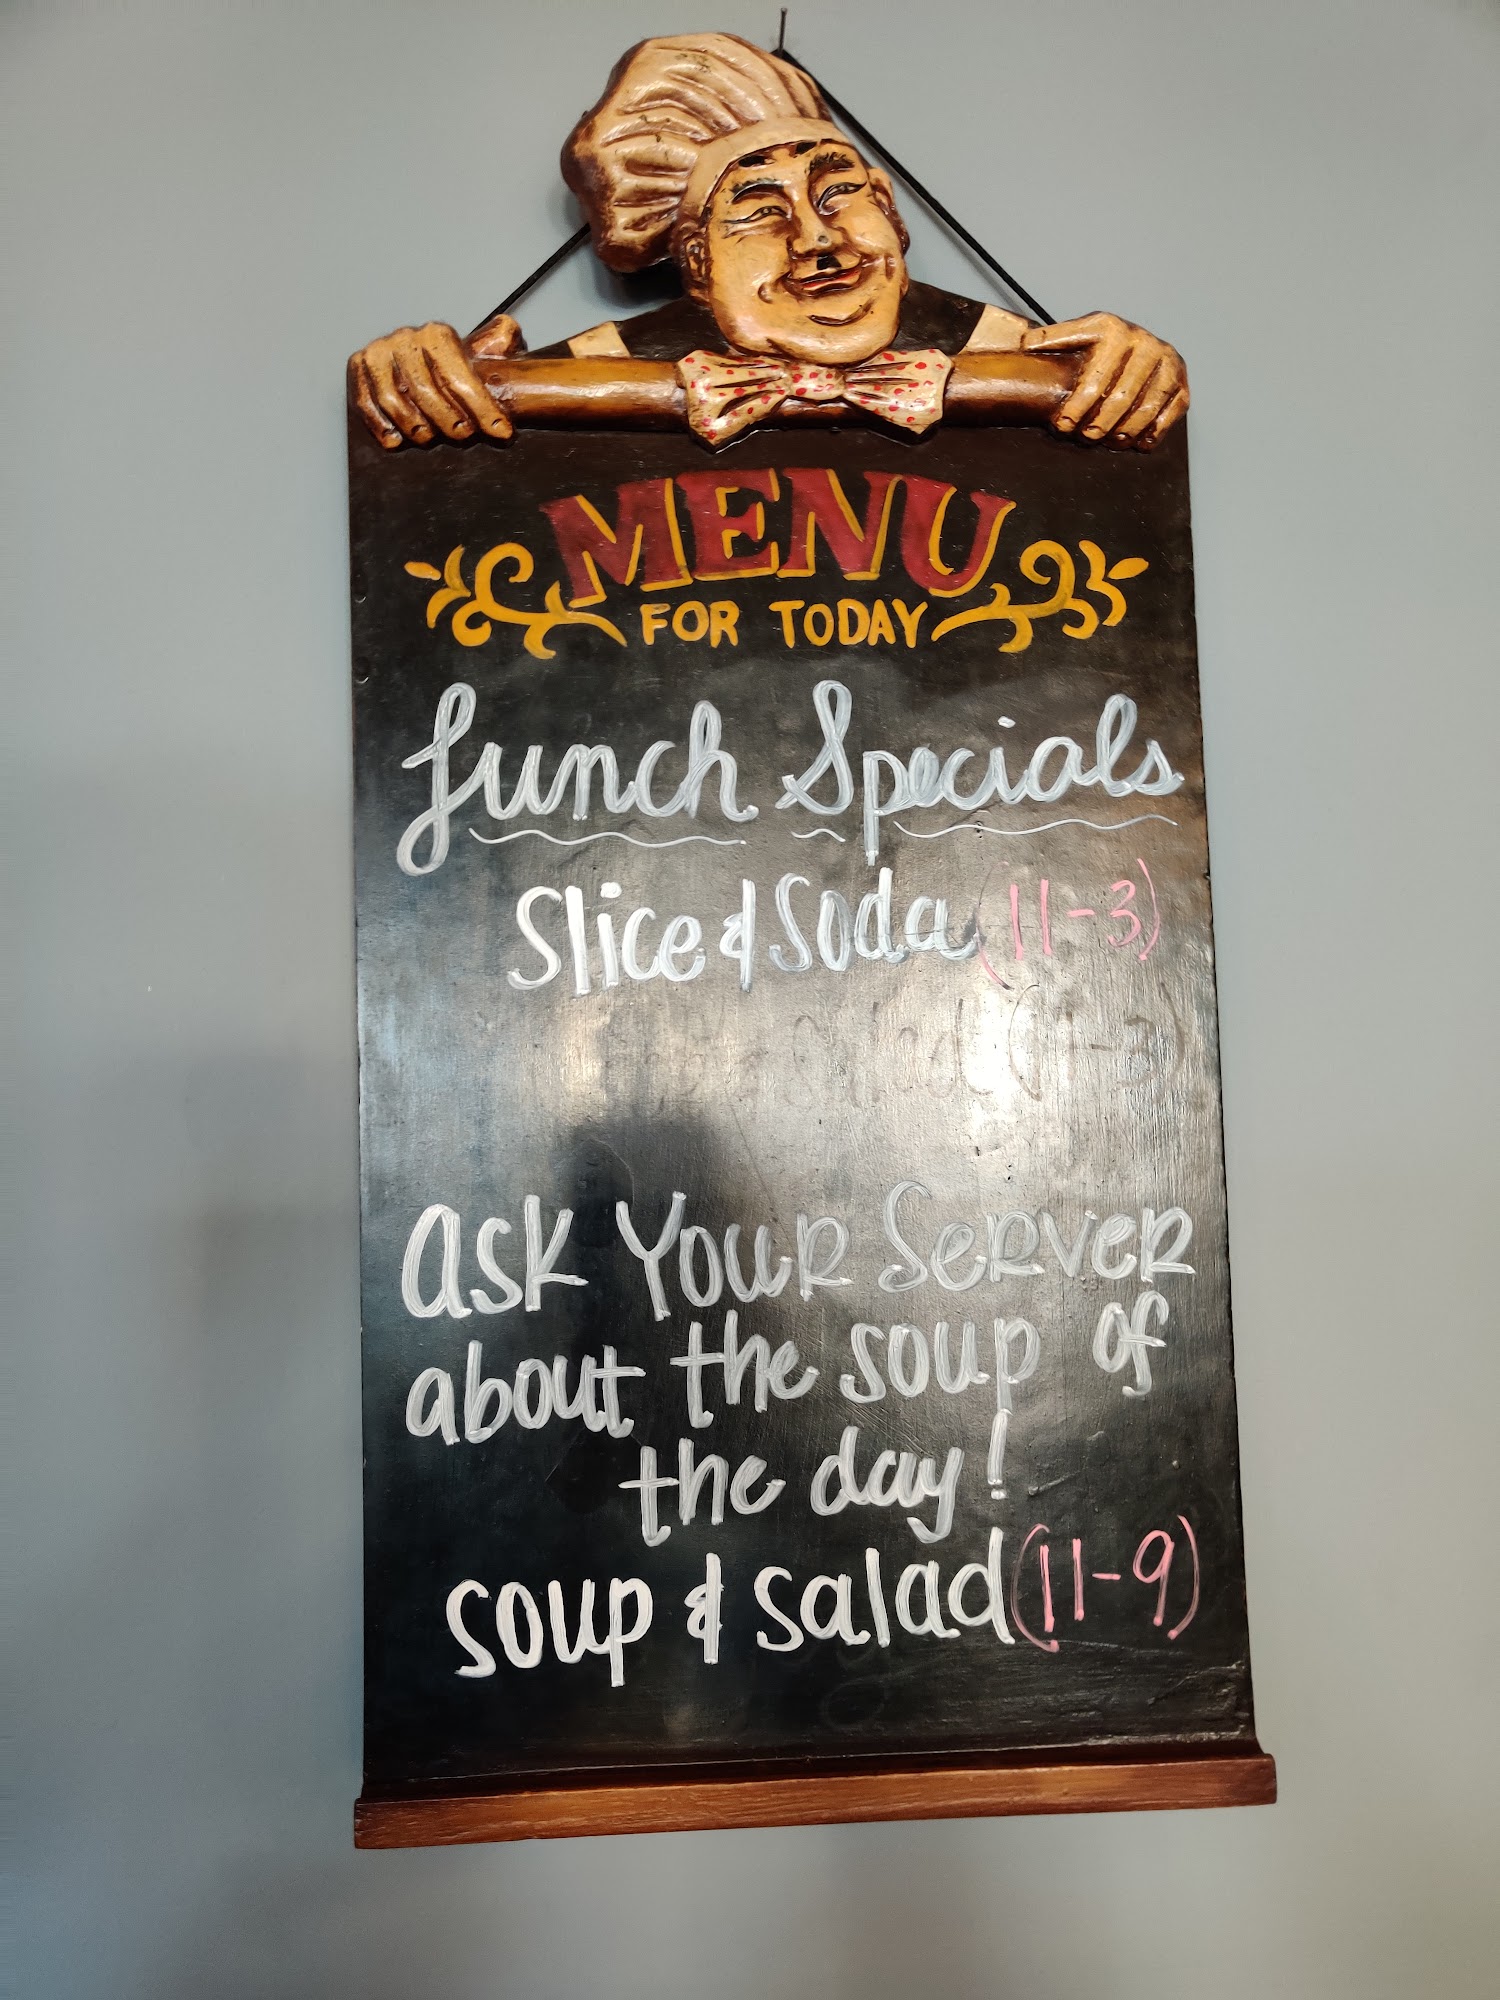 MENU
FOR TODAY
Lunch Specials
Slice & Soda (11-3)
Ask Your Server
about the soup of
the day!
soup & salad (11-9)